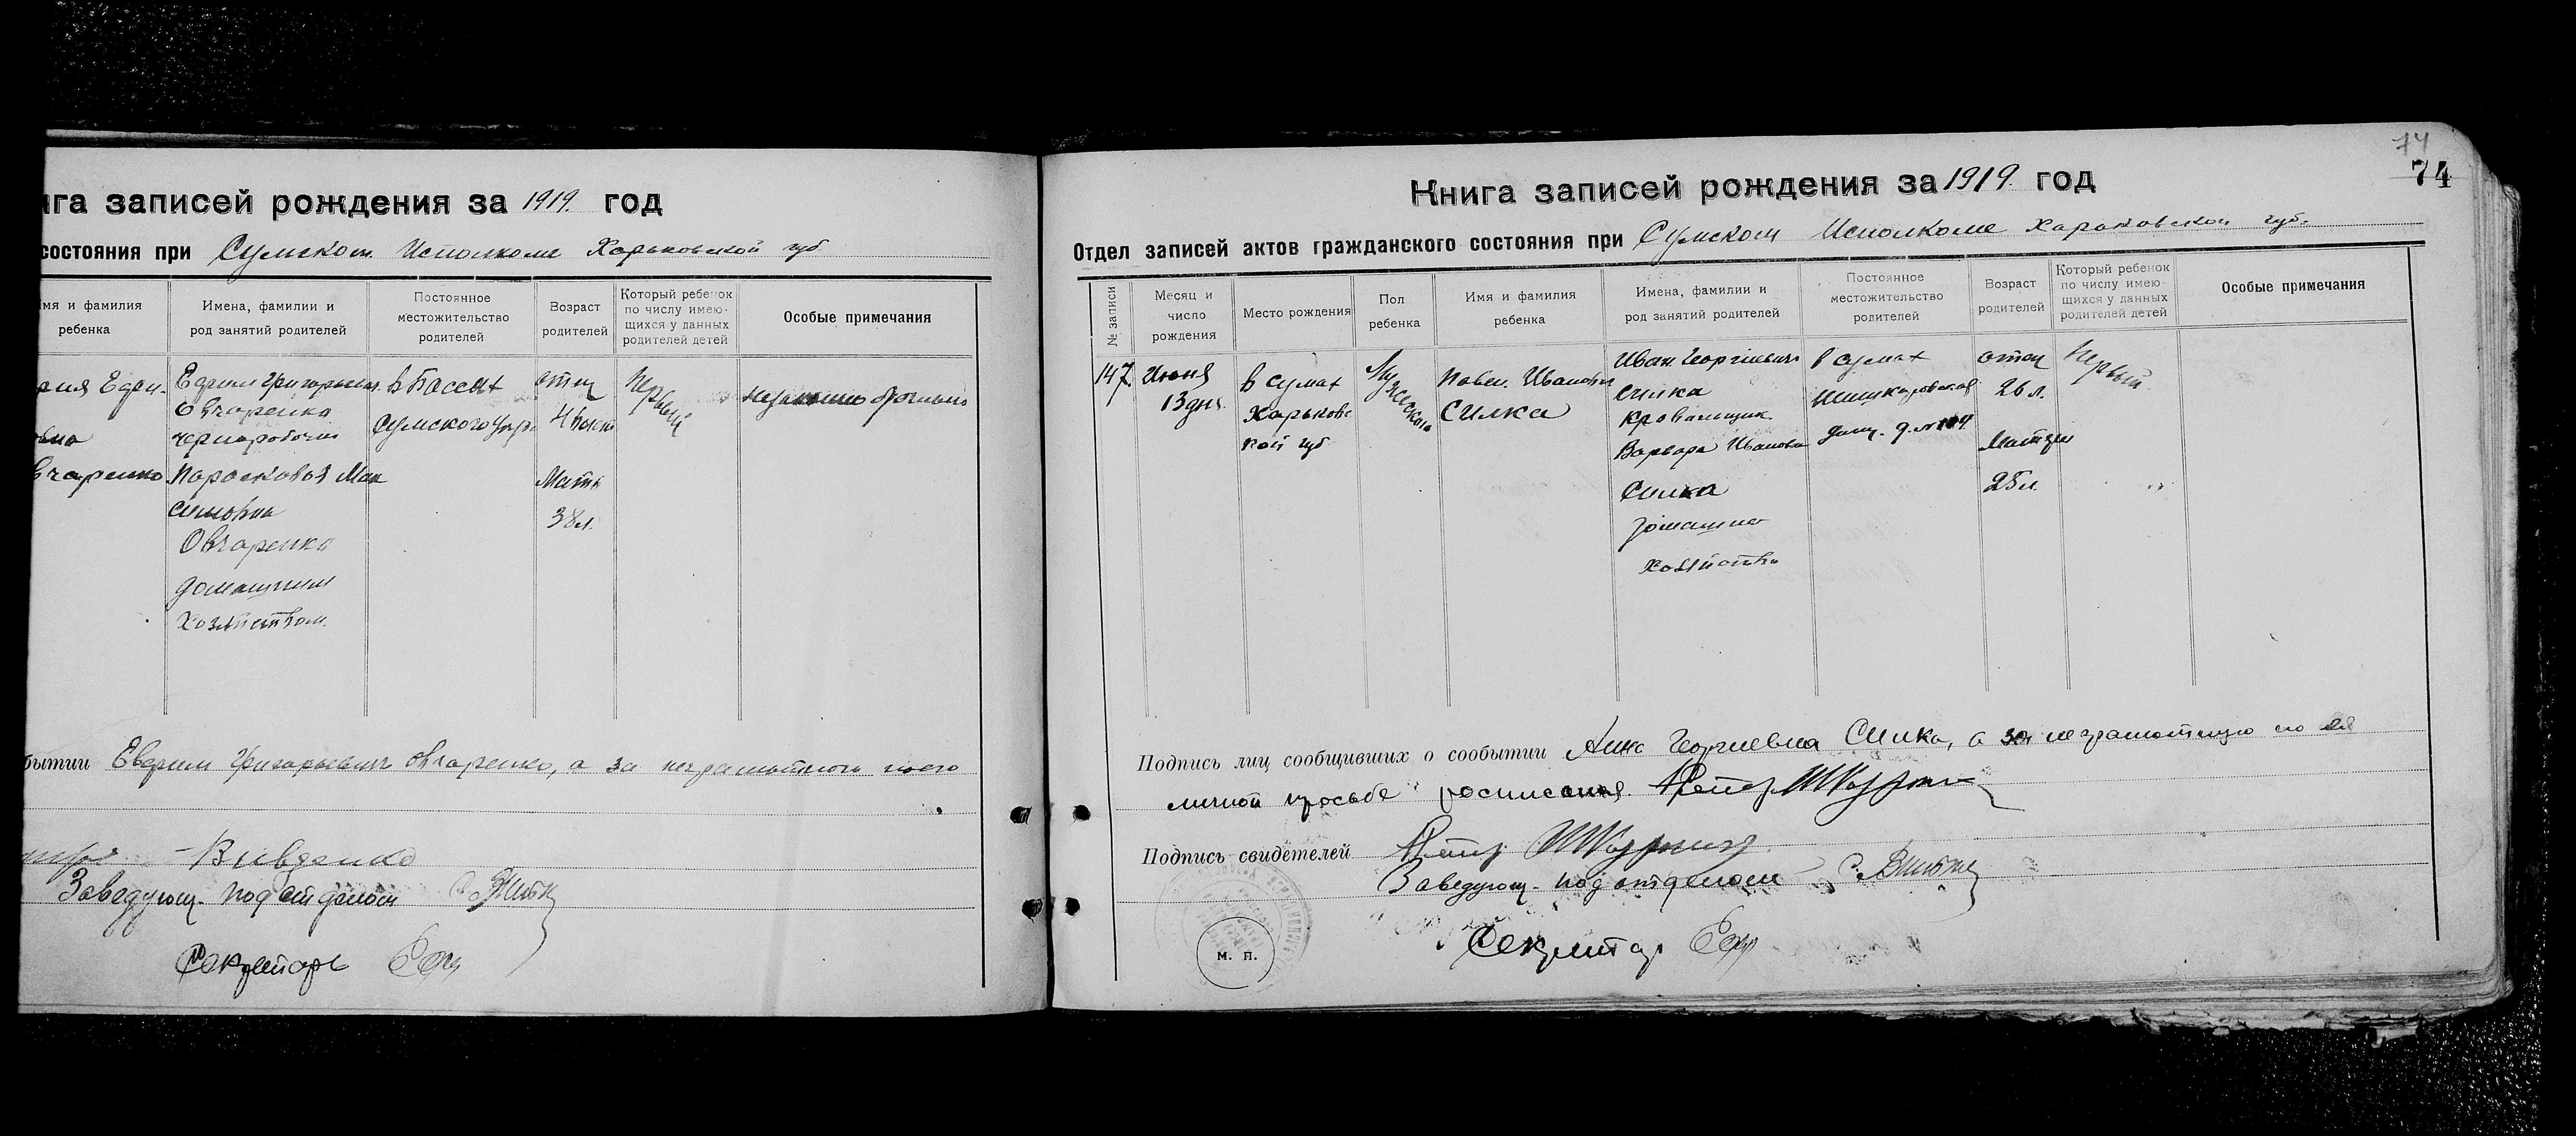 нга записей рождения за 1919. год
состояния при Сумском Исполкоме Харьковской губ.
мя и фамилия ребенка
Имена, фамилии и род занятий родителей
Постоянное местожительство родителей
Возраст родителей
Который ребенок по числу имею-щихся у данных родителей детей
Особые примечания
рия Ефи-
овна
вчаренко
Ефим Григорьевич
Овчаренко
чернорабочий
Парасковья Мак
симовна
Овчаренко
домашним
хозяйством.
в Басах
Сумского уезда
отец
Мать
38 л.
первый
бытии Ефрим Григорьевич Овчаренко, а за неграмотного
Заведующ. подотделом
Секретарь
74
74
Книга записей рождения за 1919. год
Отдел записей актов гражданского состояния при Сумском Исполкоме Харьковской губ.
№ записи
Месяц и число рождения
Место рождения
Пол ребенка
Имя и фамилия ребенка
Имена, фамилии и род занятий родителей
Постоянное местожительство родителей
Возраст родителей
Который ребенок по числу имею-щихся у данных родителей детей
Особые примечания
147.
Июня
13 дня
в Сумах
Харьковс
кой губ
Мужеского
Павел Иванович
Силка
Иван Георгиевич
Силка
кровельщик
Варвара Ивановна
Силка
домашнее
хозяйство
в Сумах
отец
26 л.
Матери
25 л.
Первый
Подпись лиц сообщивших о сообытии Анна Георгиевна Силка, а за неграмотную по ея
личной просьбе росписался Петр
Подпись свидетелей Петр
Заведующ. подотделом
Секретар
м. п.